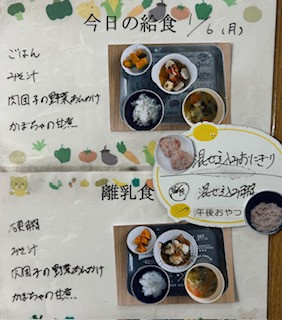 今日の給食 1/6(月)
ごはん
みそ汁
肉団子の野菜あんかけ
かぼちゃの甘煮
混ぜ込みおにぎり
混ぜ込み軟飯
午後おやつ
離乳食
軟飯
みそ汁
肉団子の野菜あんかけ
かぼちゃの甘煮